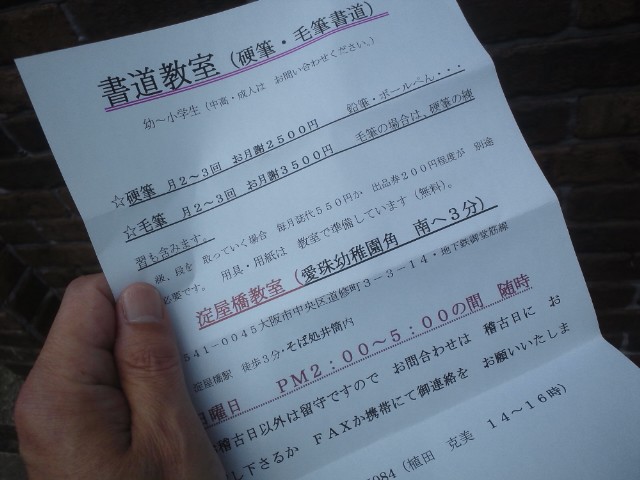 書道教室（硬筆・毛筆書道）
幼～小学生（中高・成人は　お問い合わせください。）
☆硬筆　月２～３回　お月謝２５００円　　鉛筆・ボールペン・・・
☆毛筆　月２～３回　お月謝３５００円　　毛筆の場合は、硬筆の練
習も含みます。
級、段を　取っていく場合　毎月誌代５５０円か　出品券２００円程度が　別途
必要です。　用具・用紙は　教室で準備しています（無料）。
淀屋橋教室（愛珠幼稚園角　南へ３分）
541－0045大阪市中央区道修町３－３－１４・地下鉄御堂筋線
淀屋橋駅　徒歩３分・そば処井筒内
曜日　　ＰＭ２：００～５：００の間　随時
稽古日以外は留守ですので　お問合わせは　稽古日に　お
し下さるか　ＦＡＸか携帯にて御連絡を　お願いいたしま
084（植田　克美　１４～１６時）